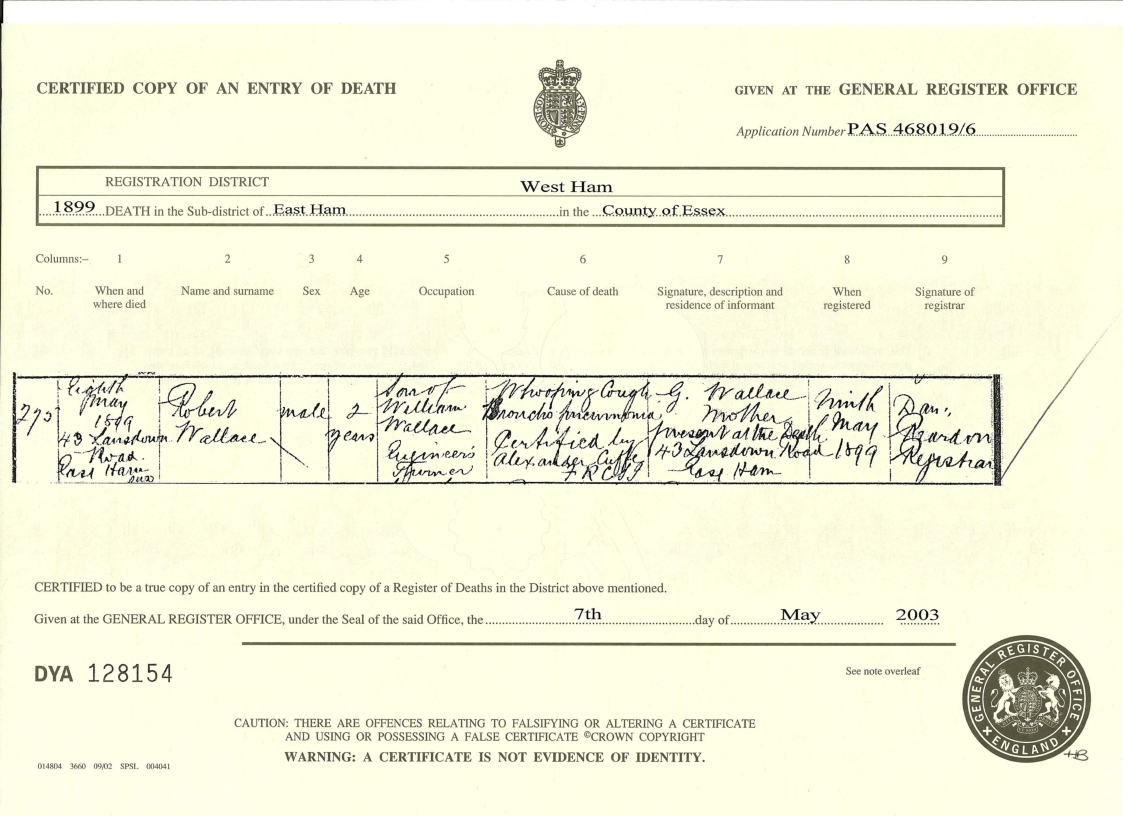 CERTIFIED COPY OF AN ENTRY OF DEATH
GIVEN AT THE GENERAL REGISTER OFFICE
Application Number PAS 468019/6
REGISTRATION DISTRICT West Ham
1899 DEATH in the Sub-district of East Ham in the County of Essex
Columns:– 1 2 3 4 5 6 7 8 9
No. When and where died Name and surname Sex Age Occupation Cause of death Signature, description and residence of informant When registered Signature of registrar
275
Eighth
May
1899
43 Lansdown
Road
East Ham
Robert
Wallace
male
2
years
Son of
William
Wallace
Engineer's
Whooping Cough
Broncho pneumonia
Certified by
Alexander Cuffe
G. Wallace
Mother
present at the Death
43 Lansdown Road
East Ham
Ninth
May
1899
Dan.
Registrar
CERTIFIED to be a true copy of an entry in the certified copy of a Register of Deaths in the District above mentioned.
Given at the GENERAL REGISTER OFFICE, under the Seal of the said Office, the 7th day of May 2003
DYA 128154
See note overleaf
GENERAL REGISTER OFFICE
ENGLAND
CAUTION: THERE ARE OFFENCES RELATING TO FALSIFYING OR ALTERING A CERTIFICATE
AND USING OR POSSESSING A FALSE CERTIFICATE ©CROWN COPYRIGHT
WARNING: A CERTIFICATE IS NOT EVIDENCE OF IDENTITY.
014804 3660 09/02 SPSL 004041
HB